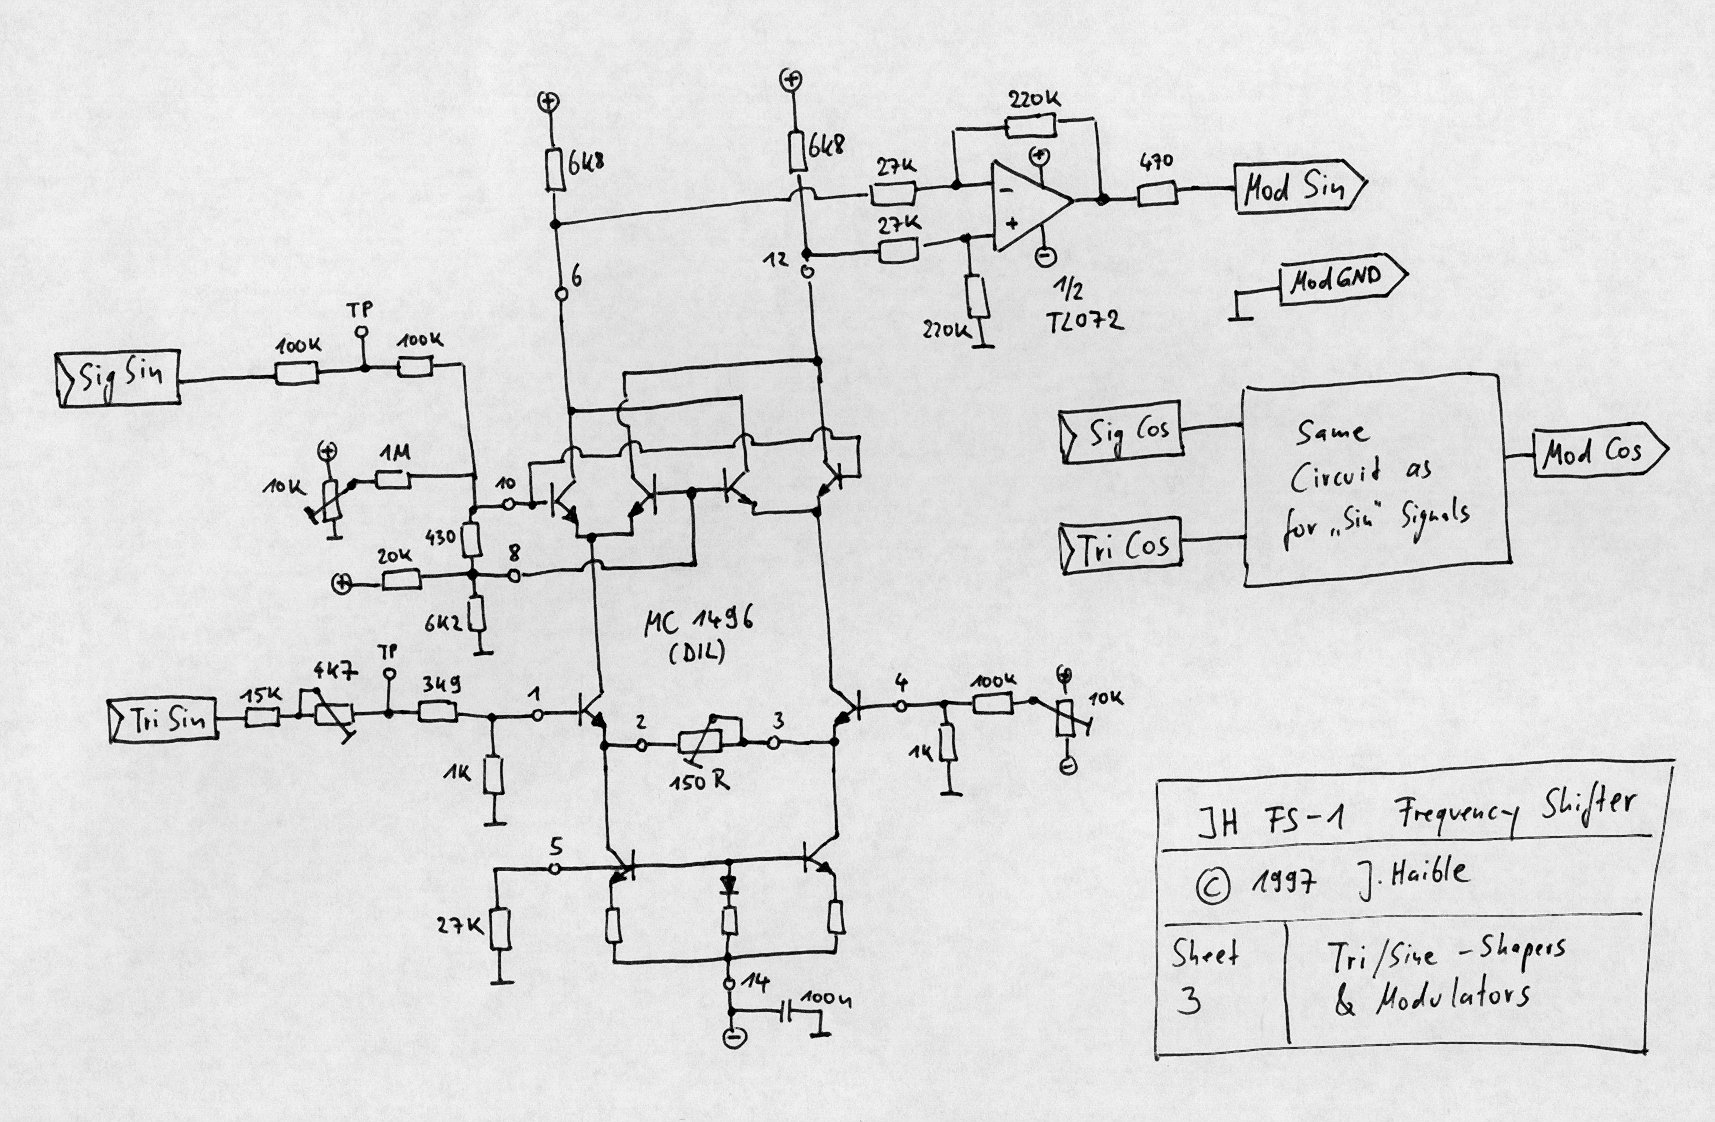 +
+
220K
6K8
6K8
27K
+
470
Mod Sin
-
27K
+
-
12
6
1/2
TL072
220K
Mod GND
TP
100K
100K
Sig Sin
+
1M
10K
10
430
20K
8
+
6K2
MC 1496
(DIL)
Sig Cos
Tri Cos
Same
Circuit as
for „Sin" Signals
Mod Cos
TP
4K7
15K
3K9
1
Tri Sin
2
3
150R
1K
4
100K
+
10K
1K
-
5
27K
14
100n
-
JH FS-1 Frequency Shifter
© 1997 J. Haible
Sheet
3
Tri/Sine - Shapers
& Modulators